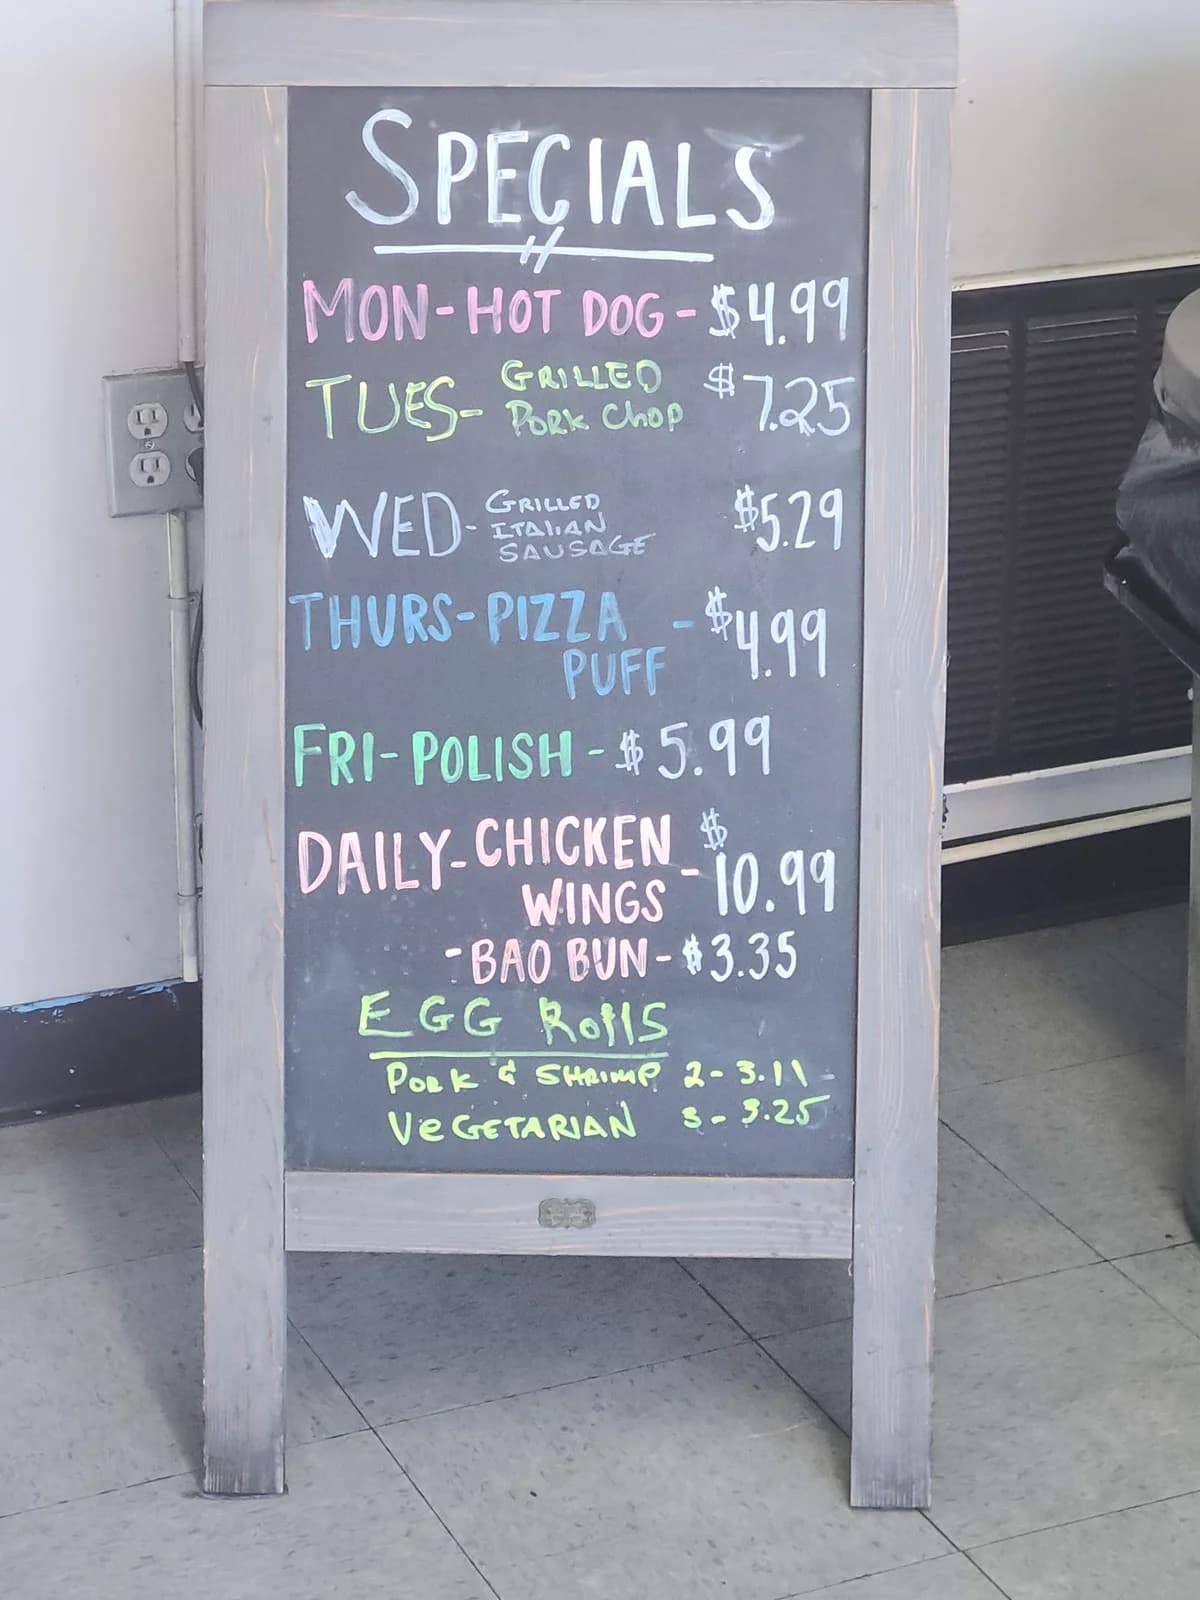 SPECIALS
MON - HOT DOG - $4.99
TUES - GRILLED PORK CHOP $7.25
WED - GRILLED ITALIAN SAUSAGE $5.29
THURS - PIZZA PUFF - $4.99
FRI - POLISH - $5.99
DAILY - CHICKEN WINGS - $10.99
- BAO BUN - $3.35
EGG Rolls
PORK & SHRIMP 2 - 3.11
VeGETARIAN 3 - 3.25